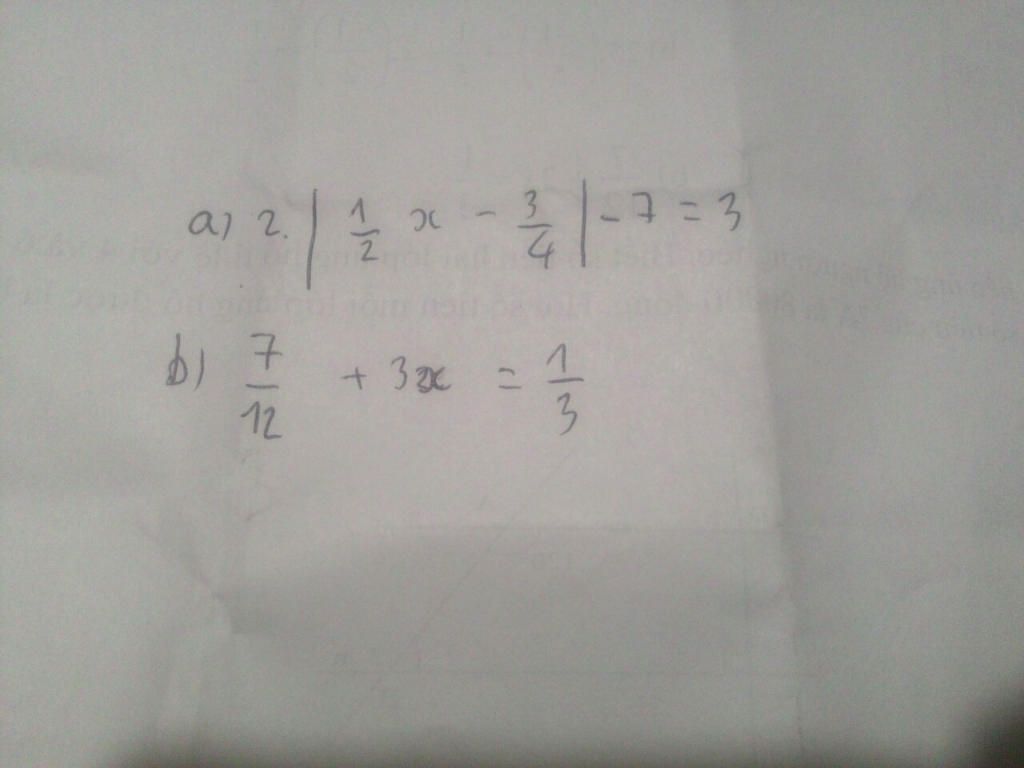 a) 2. | 1/2 x - 3/4 | - 7 = 3
b) 7/12 + 3x = 1/3